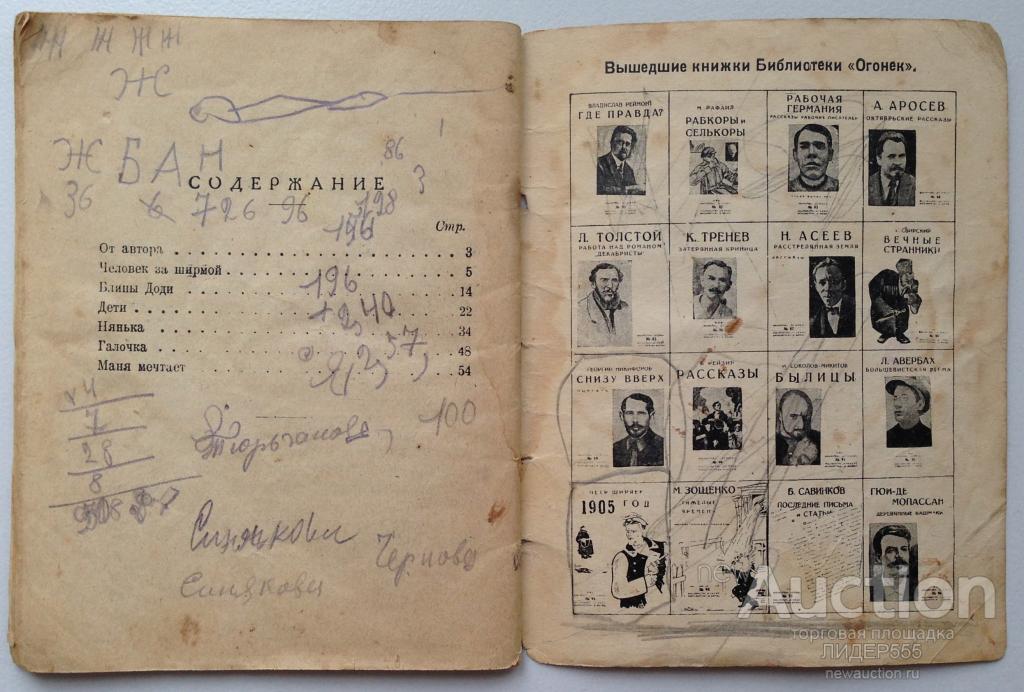 Ж Ж Ж Ж
Ж
ЖБАН
86
3
СОДЕРЖАНИЕ
36 6 7 26 96 198
196
Стр.
От автора 3
Человек за ширмой 5
Блины Доди 14
Дети 22
Нянька 34
Галочка 48
Маня мечтает 54
196
100
4
7
28
8
Синякови
Чернова
Синякови
Вышедшие книжки Библиотеки «Огонек».
ВЛАДИСЛАВ РЕЙМОНТ
ГДЕ ПРАВДА?
М. РАФАИЛ
РАБКОРЫ и
СЕЛЬКОРЫ
РАБОЧАЯ
ГЕРМАНИЯ
РАССКАЗЫ РАБОЧИХ ПИСАТЕЛЕЙ
А. АРОСЕВ
ОКТЯБРЬСКИЕ РАССКАЗЫ
Л. ТОЛСТОЙ
РАБОТА НАД РОМАНОМ
"ДЕКАБРИСТЫ"
К. ТРЕНЕВ
ЗАТЕРЯННАЯ КРИНИЦА
Н. АСЕЕВ
РАССТРЕЛЯННАЯ ЗЕМЛЯ
РАССКАЗЫ
СВИРСКИЙ
ВЕЧНЫЕ
СТРАННИКИ
ГЕОРГИЙ НИКИФОРОВ
СНИЗУ ВВЕРХ
РЕЙЗИН
РАССКАЗЫ
И. СОКОЛОВ-МИКИТОВ
БЫЛИЦЫ
Л. АВЕРБАХ
БОЛЬШЕВИСТСКАЯ ВЕСНА
ПЕТР ШИРЯЕВ
1905 ГОД
М. ЗОЩЕНКО
ТЯЖЕЛЫЕ
ВРЕМЕНА
Б. САВИНКОВ
ПОСЛЕДНИЕ ПИСЬМА
И СТАТЬИ
ГЮИ-ДЕ
МОПАССАН
ДЕРЕВЯННЫЕ БАШМАКИ
new Auction
торговая площадка
ЛИДЕР555
newauction.ru